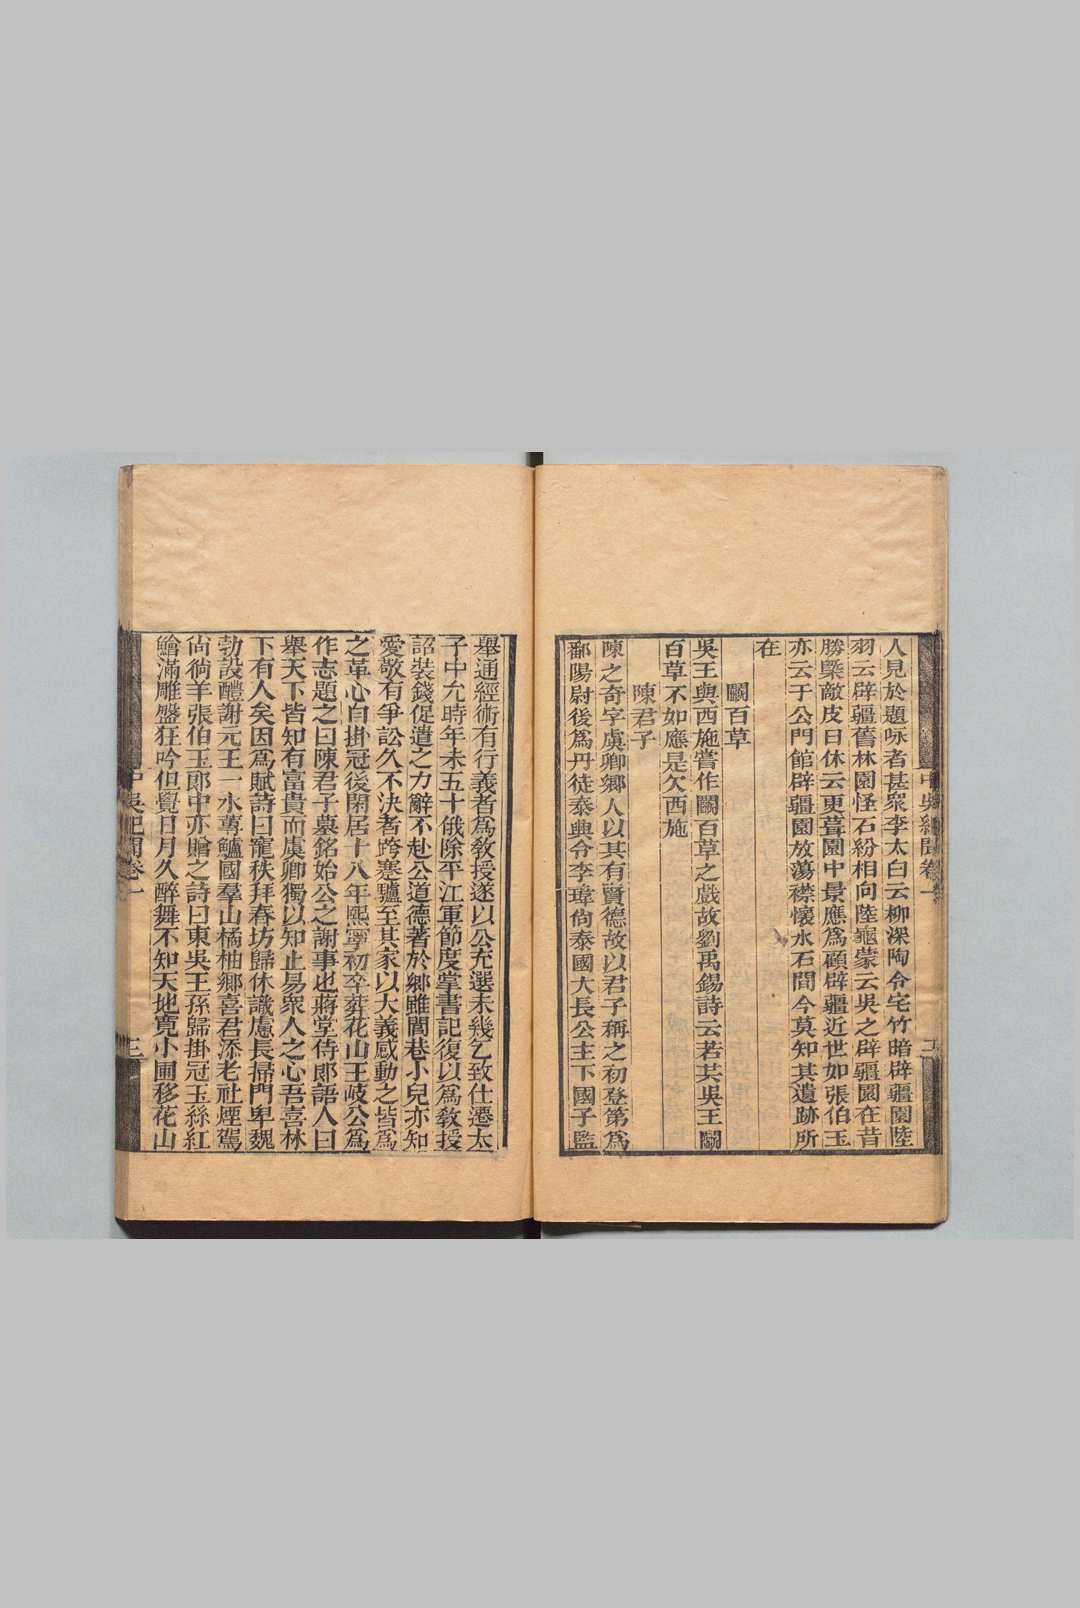 人見於題咏者甚衆李太白云柳深陶令宅竹暗辟疆園陸
羽云辟疆舊林園怪石紛相向陸龜蒙云吳之辟疆園在昔
勝槩敵皮日休云更葺園中景應為顧辟疆近世如張伯玉
亦云于公門館辟疆園放蕩襟懷水石間今莫知其遺跡所
在
鬭百草
吳王與西施嘗作鬭百草之戲故劉禹錫詩云若共吳王鬭
百草不如應是欠西施
陳君子
陳之奇字虞卿鄉人以其有賢德故以君子稱之初登第為
鄱陽尉後為丹徒泰興令李瑋尙泰國大長公主下國子監
舉通經術有行義者為敎授遂以公充選未幾乞致仕遷太
子中允時年未五十俄除平江軍節度掌書記復以為敎授
詔裝錢促遣之力辭不赴公道德著於鄉雖閭巷小兒亦知
愛敬有爭訟久不決者跨蹇驢至其家以大義感動之皆為
之革心自掛冠後閑居十八年熙寧初卒葬花山王岐公為
作志題之曰陳君子墓銘始公之謝事也蔣堂侍郎語人曰
舉天下皆知有富貴而虞卿獨以知止易衆人之心吾喜林
下有人矣因為賦詩曰寵秩拜春坊歸休識慮長掃門卑魏
勃設醴謝元王一水蓴鱸國羣山橘柚鄉喜君添老社煙駕
尙徜羊張伯玉郎中亦贈之詩曰東吳王孫歸掛冠玉絲紅
鱠滿雕盤狂吟但覺日月久醉舞不知天地寬小圃移花山
中吳紀聞卷一